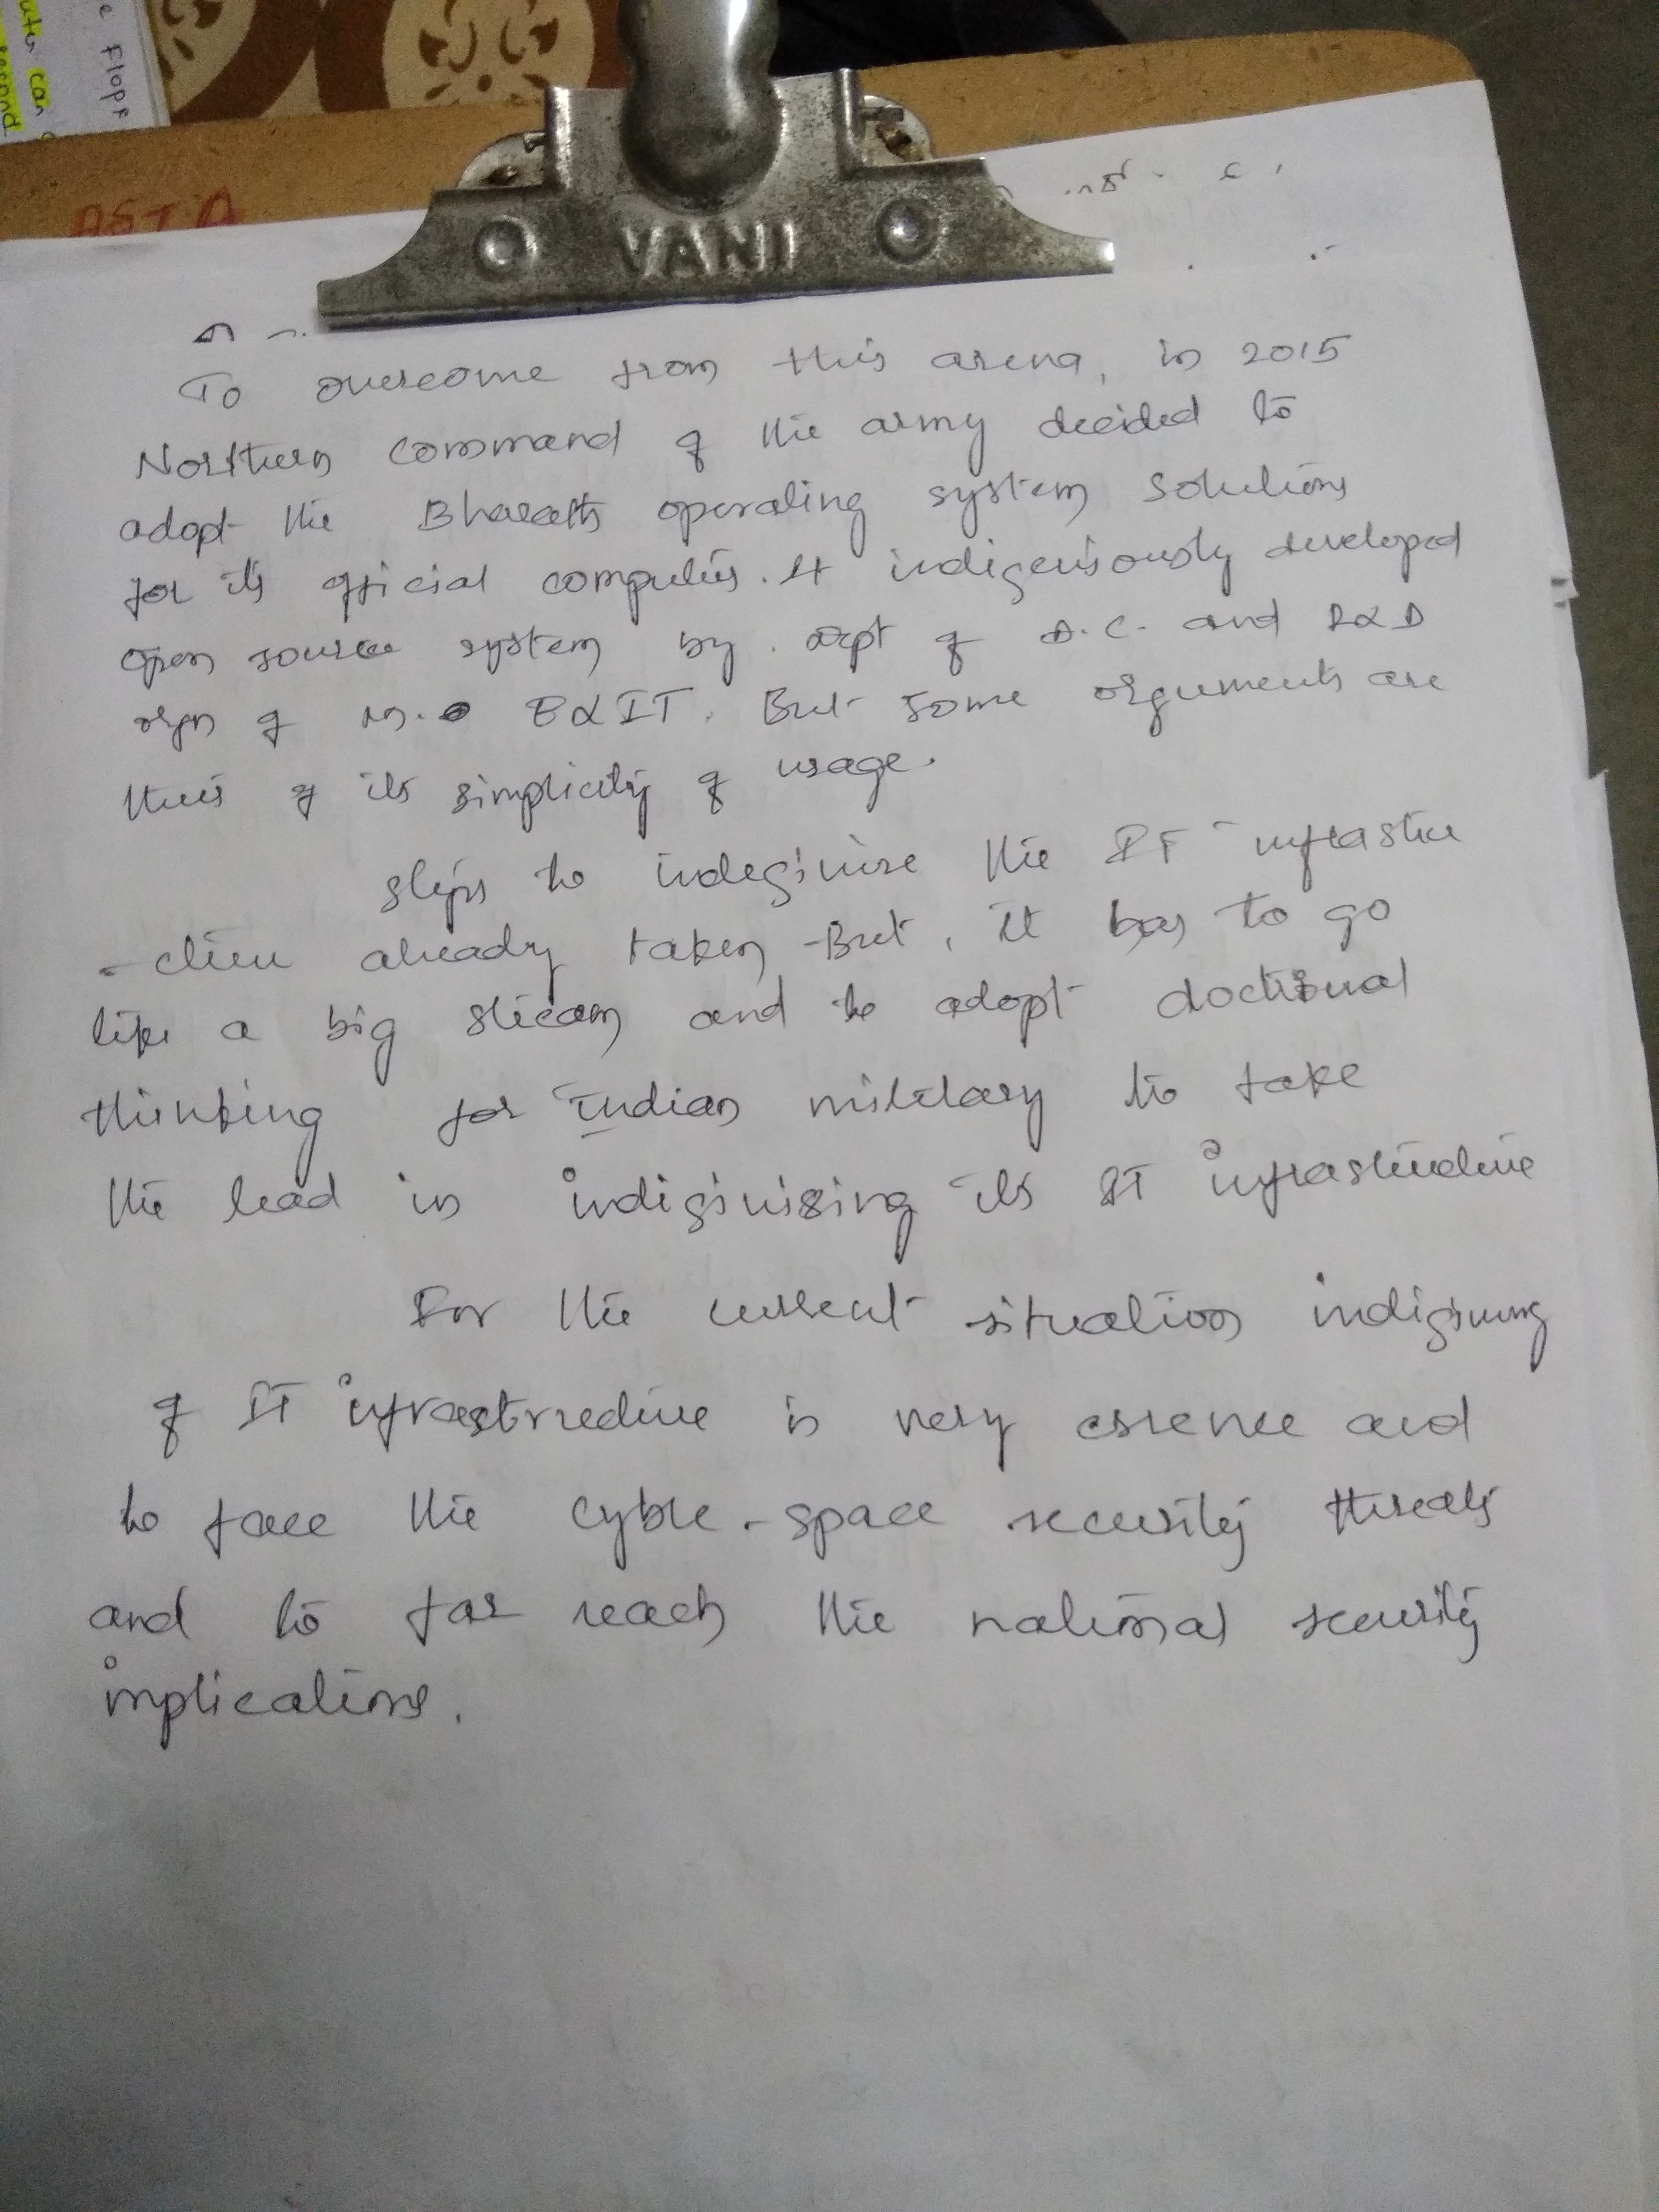 e Flopp
uter can
second
ASTA
VANI
To overcome from this arena, in 2015
Northern command of the army decided to
adopt the Bharath operating system solutions
for its official computers. It indigeniously developed
open source system by dept of D.C. and R&D
orgn of M.O E&IT. But some arguments are
there of its simplicity of usage.
steps to indeginise the IT infrastru
-cture already taken But, it has to go
like a big stream and to adopt doctrinal
thinking for Indian military to take
the lead in indiginising its IT infrastructure
For the current situation indigising
of IT infrastructure is very essence and
to face the cyble-space security threats
and to far reach the national security
implications.